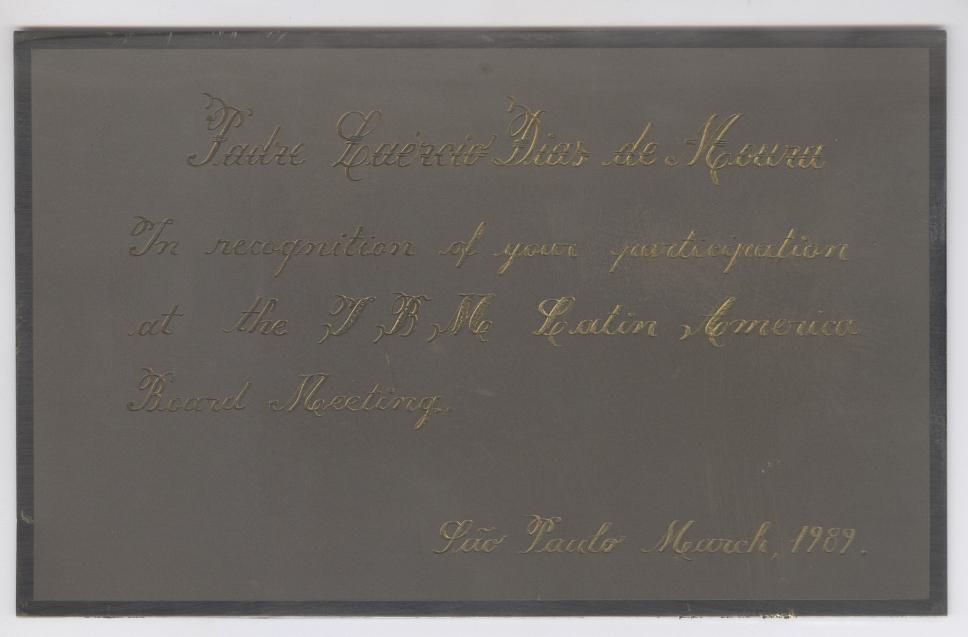 Padre Laércio Dias de Moura
In recognition of your participation
at the I B M Latin America
Board Meeting.
São Paulo March, 1989.